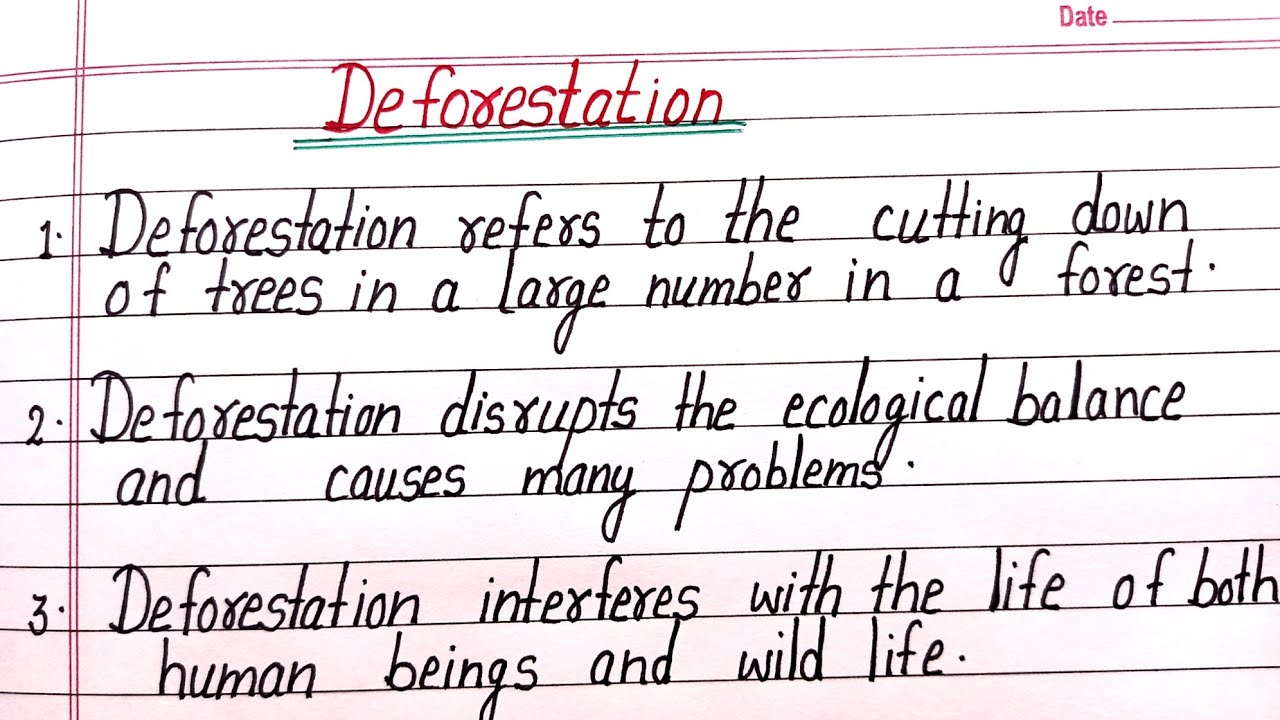 Date
Deforestation
1. Deforestation refers to the cutting down
of trees in a large number in a forest.
2. Deforestation disrupts the ecological balance
and causes many problems.
3. Deforestation interferes with the life of both
human beings and wild life.